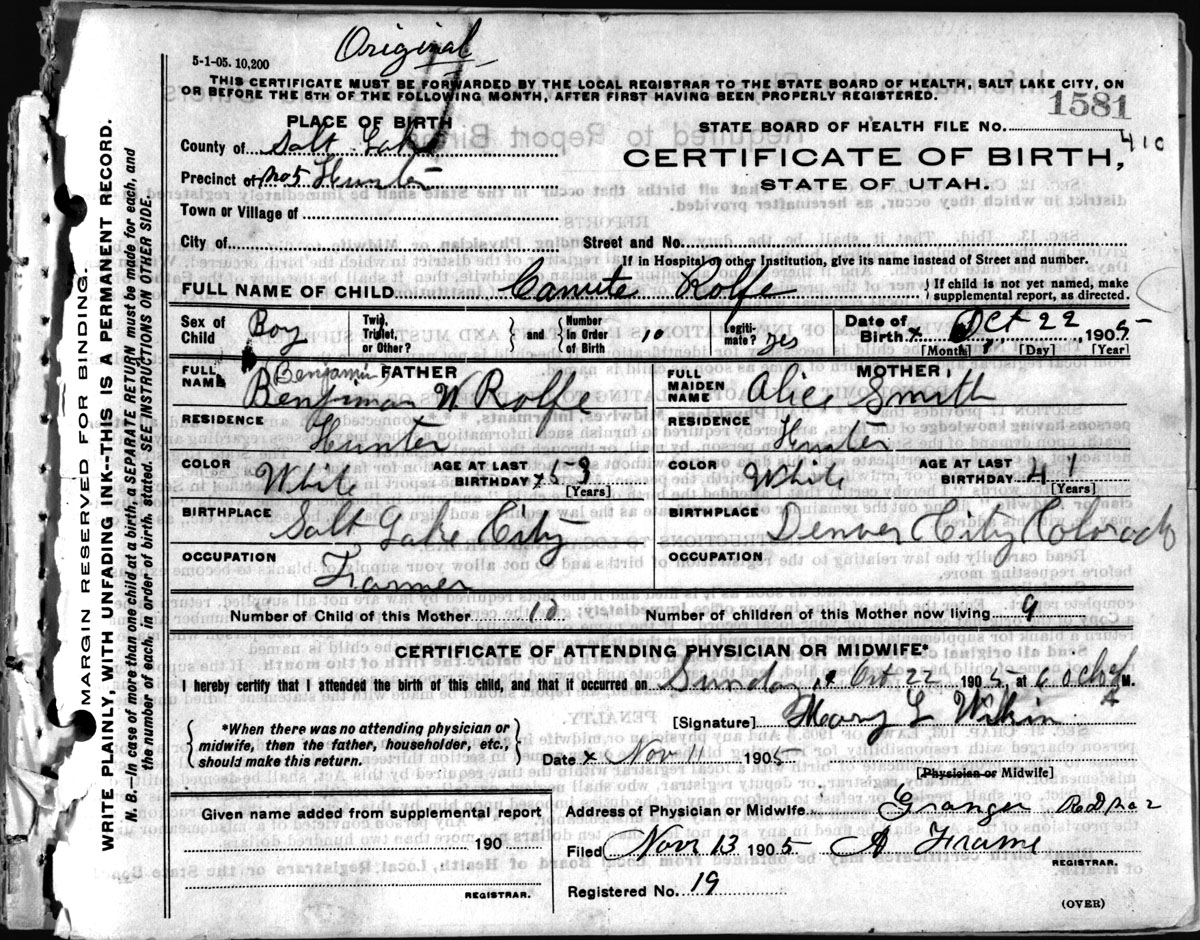 Original
5-1-05. 10,200
THIS CERTIFICATE MUST BE FORWARDED BY THE LOCAL REGISTRAR TO THE STATE BOARD OF HEALTH, SALT LAKE CITY, ON
OR BEFORE THE 5TH OF THE FOLLOWING MONTH, AFTER FIRST HAVING BEEN PROPERLY REGISTERED.
1581
PLACE OF BIRTH
STATE BOARD OF HEALTH FILE NO.
410
County of Salt Lake
CERTIFICATE OF BIRTH,
Precinct of No 5 Hunter
STATE OF UTAH.
Town or Village of
City of Street and No.
If in Hospital or other Institution, give its name instead of Street and number.
FULL NAME OF CHILD Canute Rolfe { If child is not yet named, make supplemental report, as directed.
Sex of Child Boy Twin, Triplet, or Other? } and { Number in Order of Birth 10 Legiti-mate? yes Date of Birth x Oct 22 1905
[Month] [Day] [Year]
FATHER MOTHER
FULL NAME (Benjamin) Benjiman W Rolfe FULL MAIDEN NAME Alice Smith
RESIDENCE Hunter RESIDENCE Hunter
COLOR White AGE AT LAST BIRTHDAY x 59 [Years] COLOR White AGE AT LAST BIRTHDAY 41 [Years]
BIRTHPLACE Salt Lake City BIRTHPLACE Denver City Colorado
OCCUPATION Farmer OCCUPATION
Number of Child of this Mother 10 Number of children of this Mother now living 9
CERTIFICATE OF ATTENDING PHYSICIAN OR MIDWIFE*
I hereby certify that I attended the birth of this child, and that it occurred on Sunday x Oct 22 1905, at 6 oclock A M.
*When there was no attending physician or
midwife, then the father, householder, etc.,
should make this return.
[Signature] Mary L Wikin
Date x Nov 11 1905
[Physician or Midwife]
Given name added from supplemental report
190
REGISTRAR.
Address of Physician or Midwife Granger
Filed Nov 13 1905 A Frame
REGISTRAR.
Registered No. 19
(OVER)
MARGIN RESERVED FOR BINDING.
WRITE PLAINLY, WITH UNFADING INK--THIS IS A PERMANENT RECORD.
N. B.—In case of more than one child at a birth, a SEPARATE RETURN must be made for each, and
the number of each, in order of birth, stated. SEE INSTRUCTIONS ON OTHER SIDE.